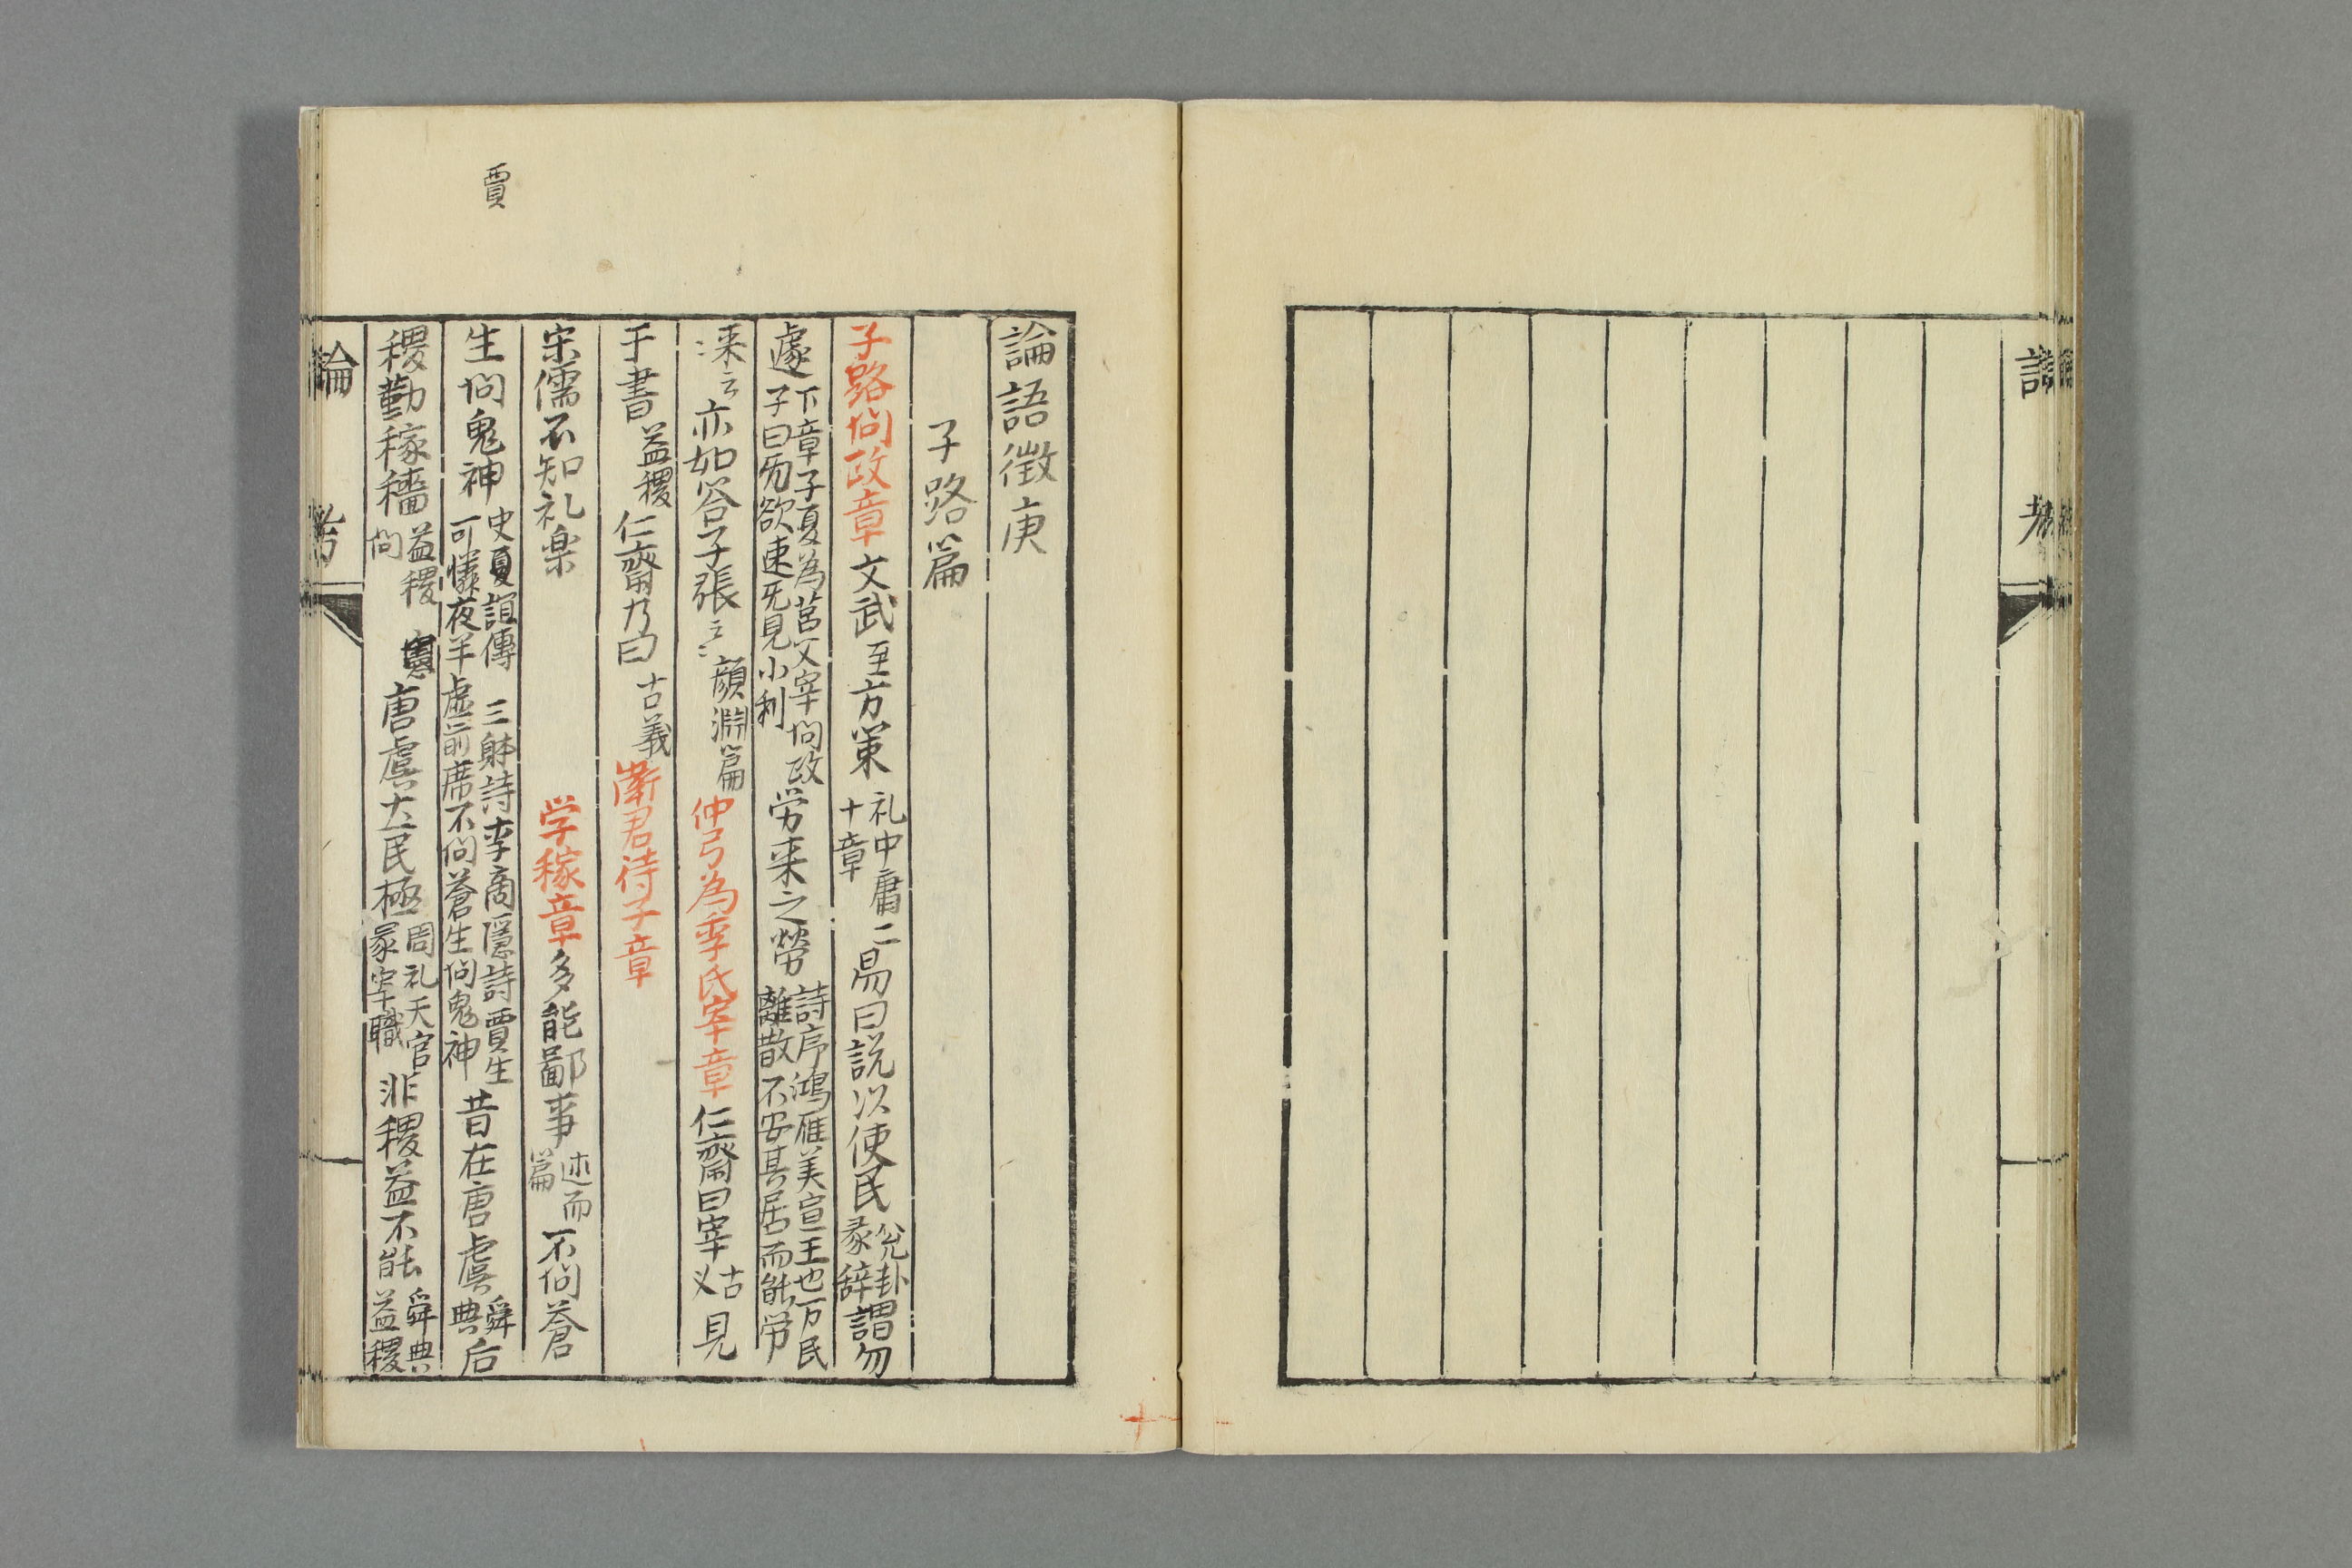 論語徴庚
子路篇
子路问政章文武至方策礼中庸二十章易曰説以使民兌卦彖辞謂勿
遽下章子夏為莒父宰问政子曰毋欲速旡見小利労来之勞詩序鴻雁美宣王也万民離散不安其居而能労
来云亦如答子張云云顔淵篇仲弓為季氏宰章仁齋曰宰古义見
于書益稷仁齋乃曰古義衛君待子章
宋儒不知礼楽学稼章多能鄙事述而篇不问蒼
生问鬼神史夏誼傳三躰詩李商隠詩賈生可憐夜半虚前席不问蒼生问鬼神昔在唐虞舜典后
稷勤稼穡益稷问唐虞大民極周礼天官冢宰職非稷益不能舜典益稷
賈
論
考